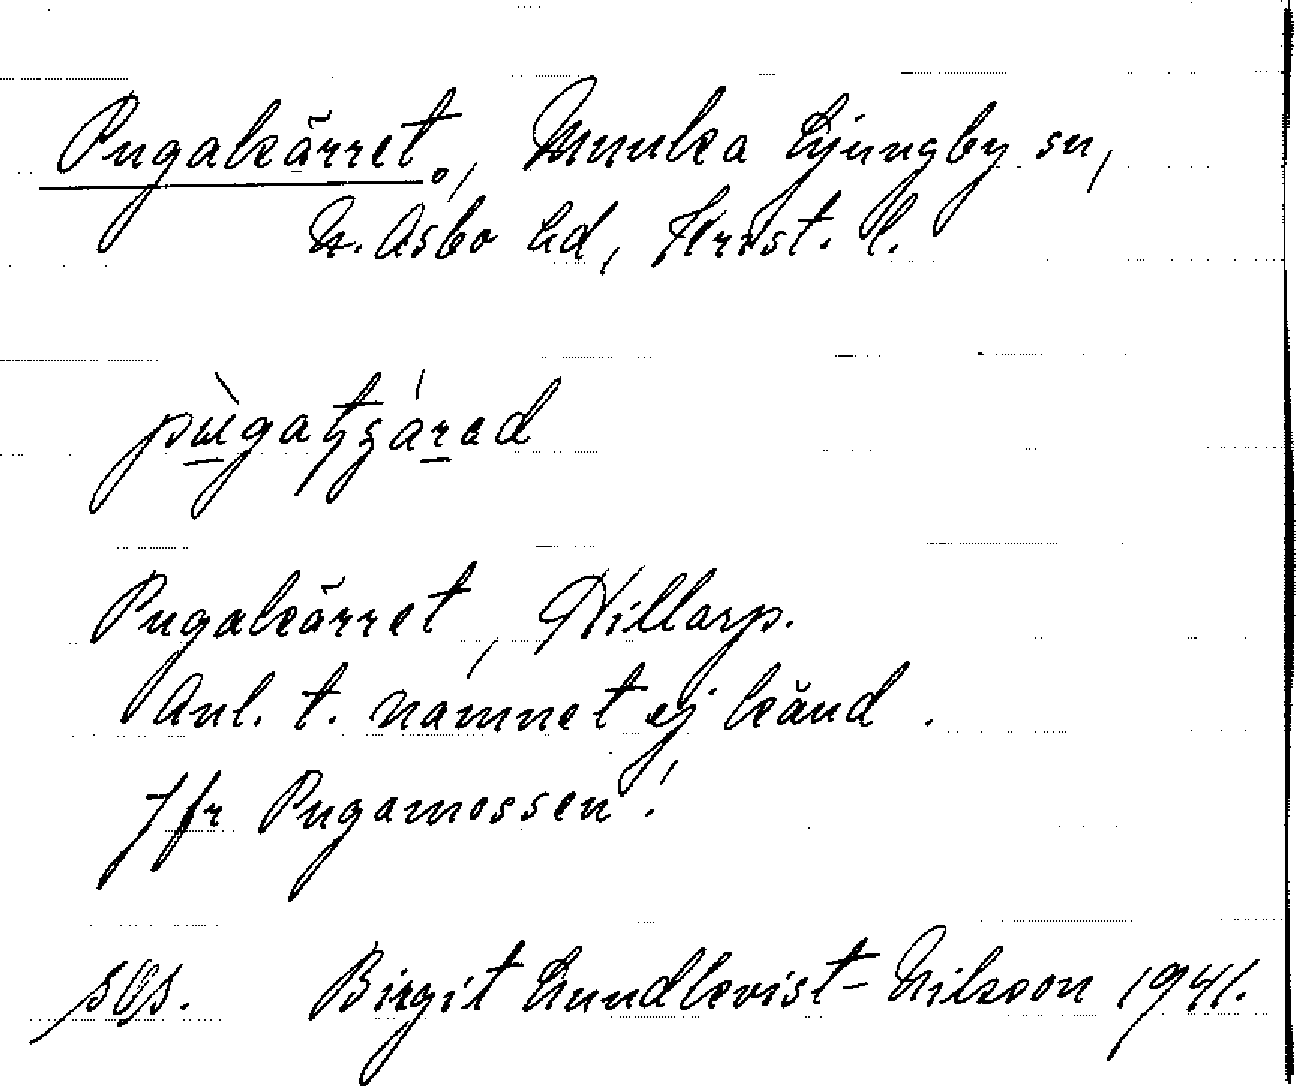 Pugakärret., Munka Ljungby sn,
N. Åsbo hd, Krist. l.
Pugakärret, Hillarp.
Anl. t. namnet ej känd.
Jfr Pugamossen!
Birgit Lundkvist-Nilsson 1941.